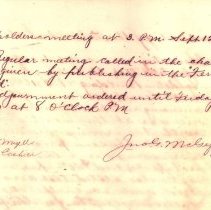 holders meeting at 3. P.M. Sept 12
Regular meeting called in the
given by publishing in the
adjournment ordered until Friday
at 8 O'Clock P.M
Jno. G. McCoy